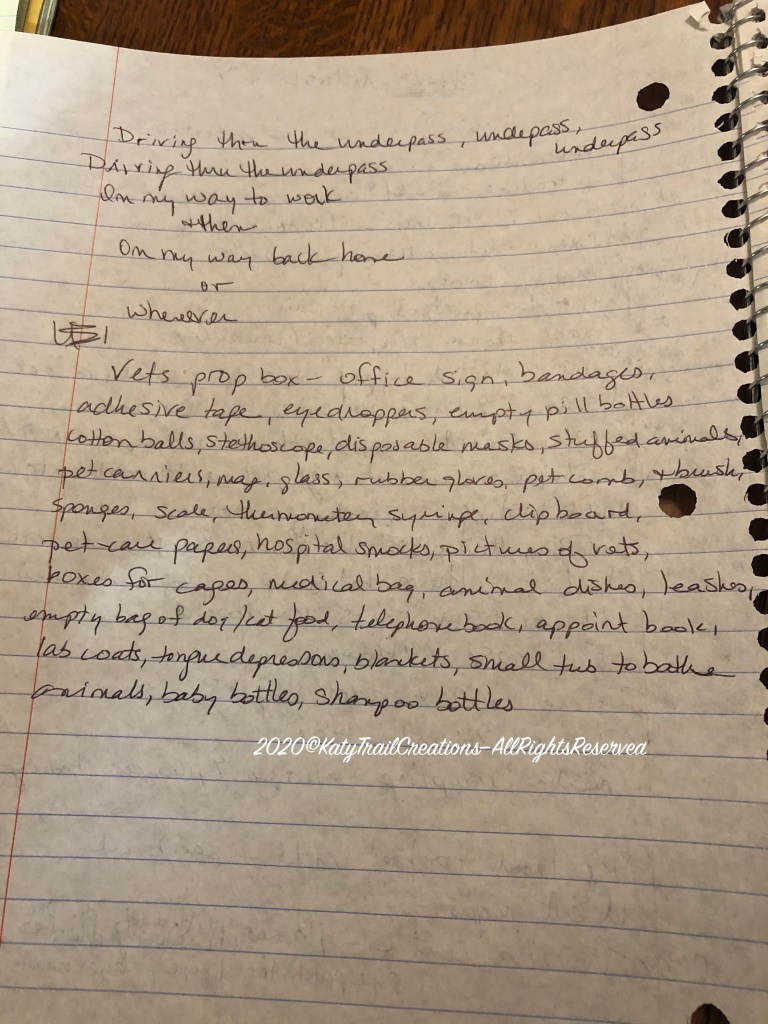 Driving thru the underpass, underpass,
underpass
Driving thru the underpass
On my way to work
+ then
On my way back home
or
wherever
Vets prop box - office sign, bandages,
adhesive tape, eyedroppers, empty pill bottles
cotton balls, stethoscope, disposable masks, stuffed animals,
pet carriers, mag. glass, rubber gloves, pet comb, + brush,
sponges, scale, thermometer, syringe, clipboard,
pet-care papers, hospital smocks, pictures of vets,
boxes for cages, medical bag, animal dishes, leashes,
empty bag of dog/cat food, telephone book, appoint book,
lab coats, tongue depressors, blankets, small tub to bathe
animals, baby bottles, shampoo bottles
2020©KatyTrailCreations-AllRightsReserved